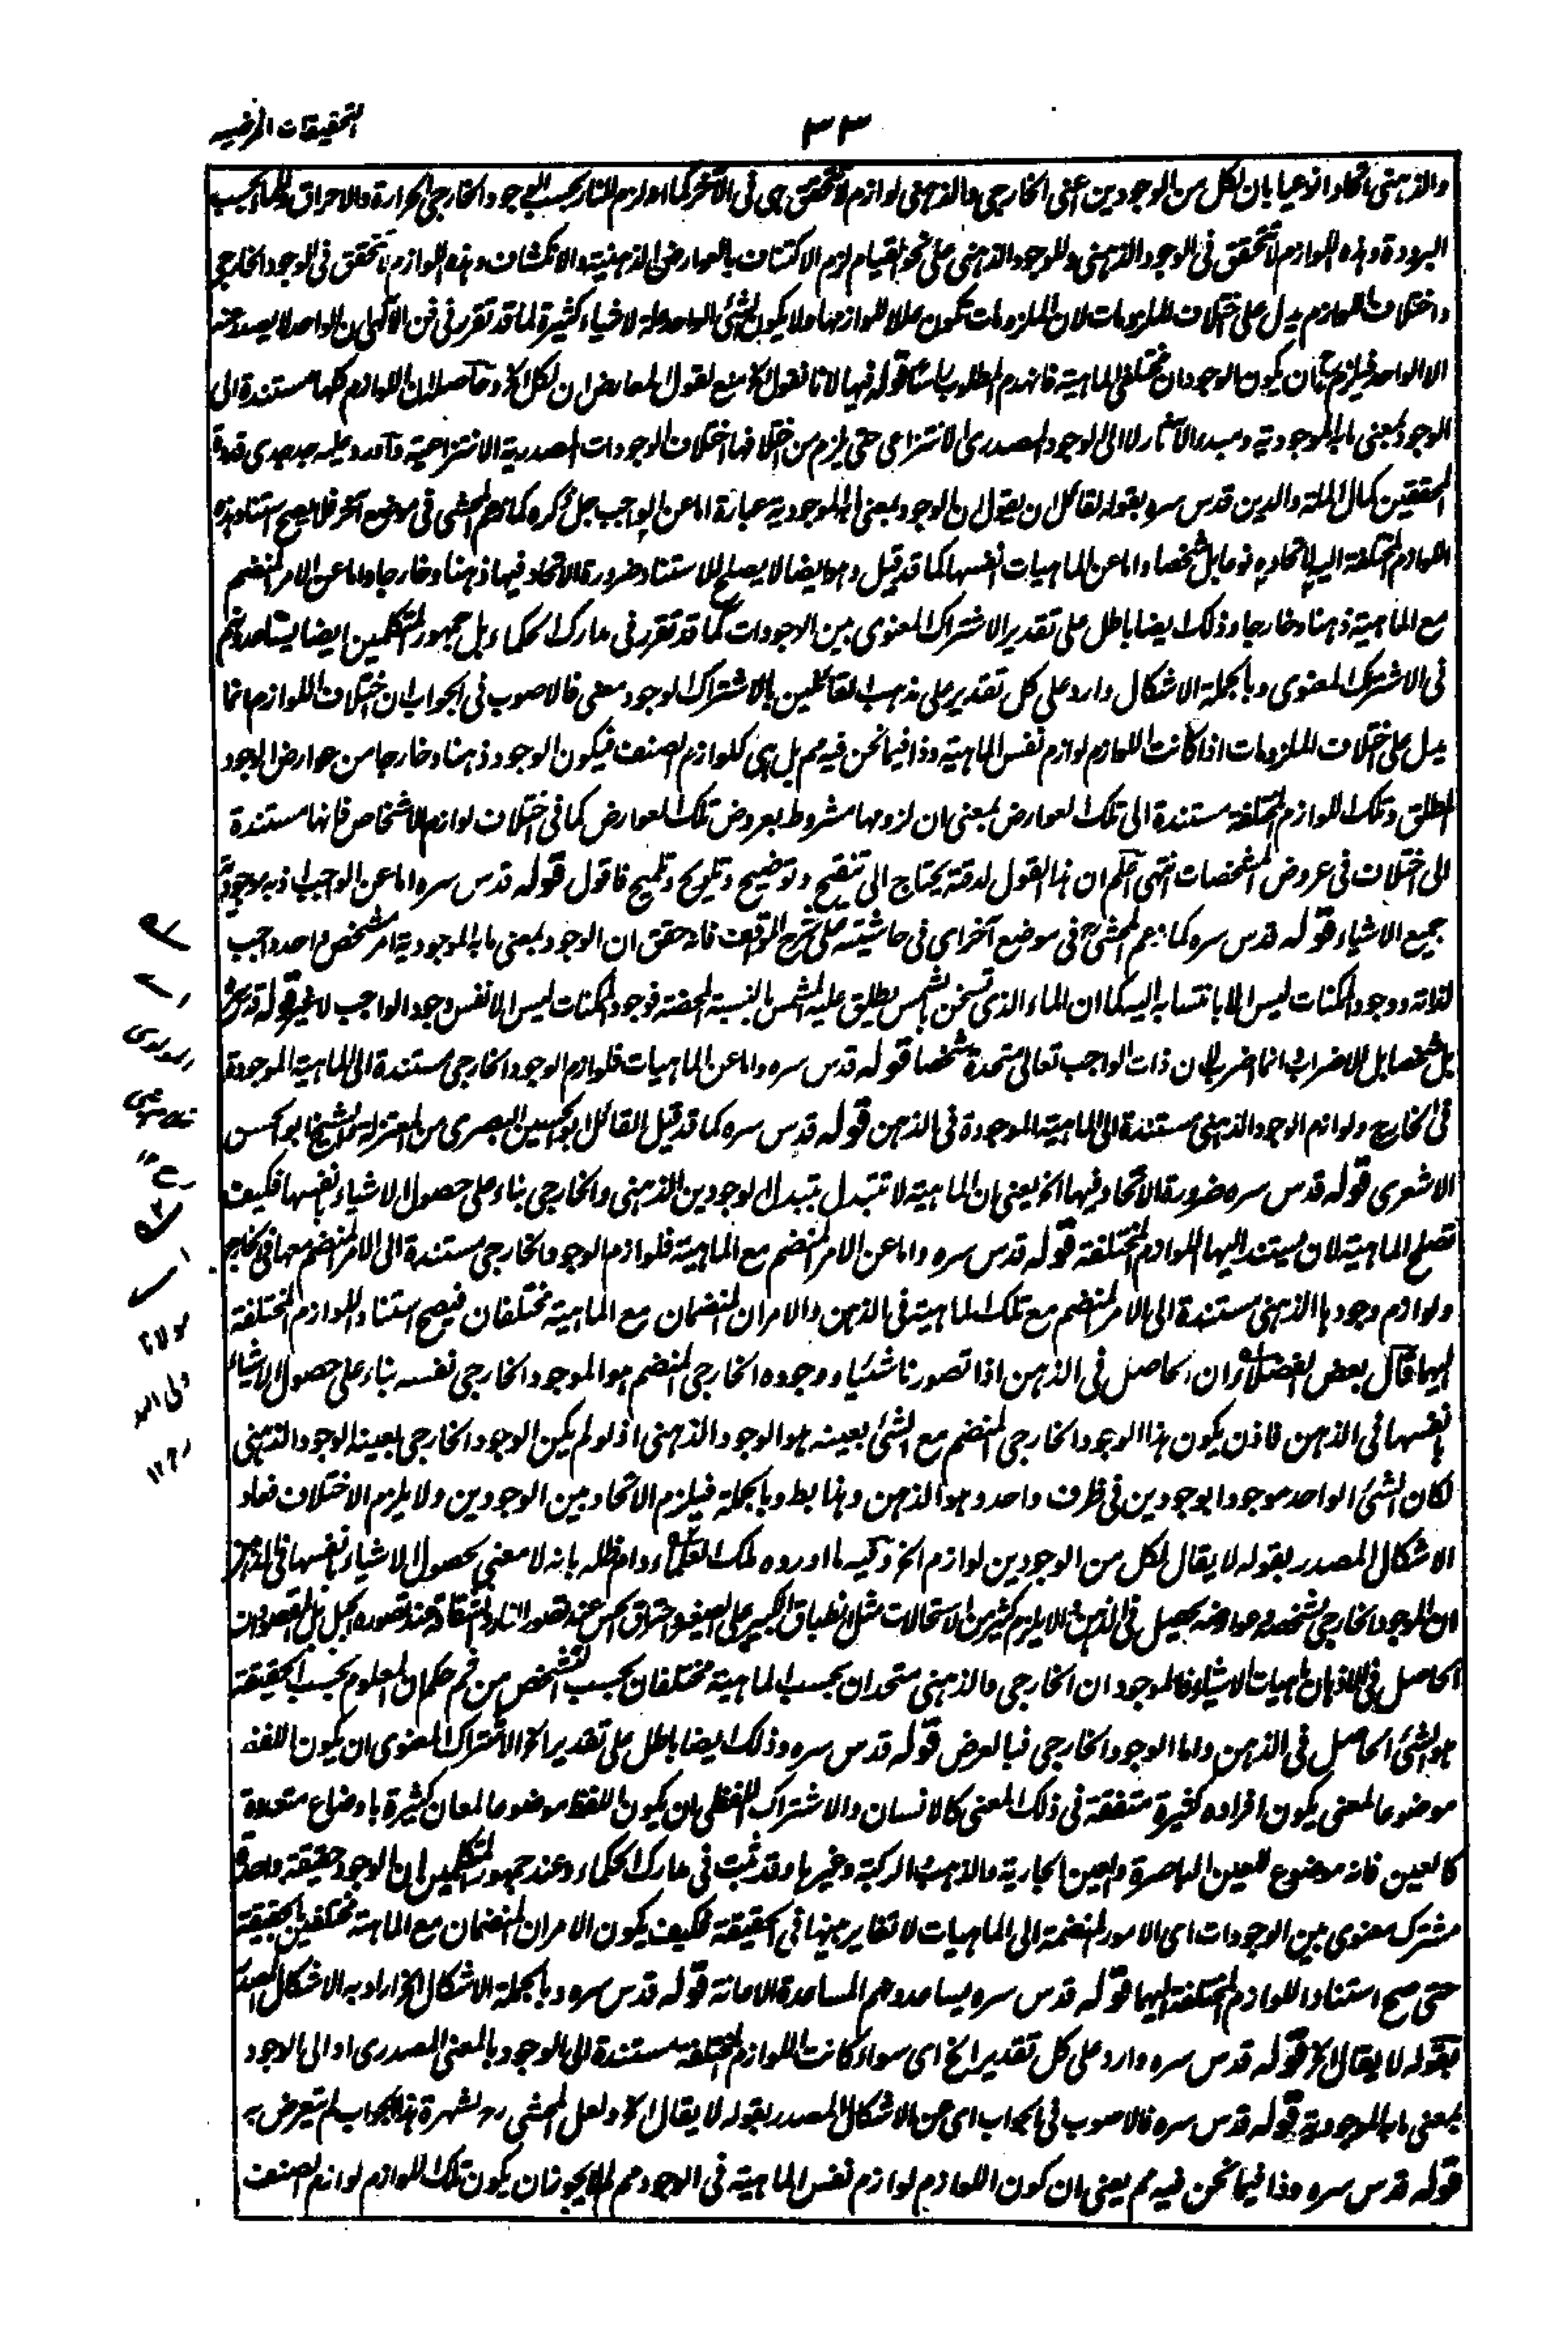 التحقیقات المرضیہ
۳۳
والذہنی اتحادا نوعیا بان لکل من الوجودین اعنی الخارجی والذہنی لوازم لا تتحقق ہی فی الآخر کما ان لوازم النار بحسب الوجود الخارجی الحرارۃ والاحراق وللماء بحسبہ
البرودۃ وہذہ اللوازم لا تتحقق فی الوجود الذہنی وللوجود الذہنی علی نحو القیام لزم الاکتناف بالعوارض الذہنیۃ والانکشاف وہذہ اللوازم لا تتحقق فی الوجود الخارجی
واختلاف اللوازم یدل علی اختلاف الملزومات لان الملزومات تکون عللا للوازمہا ولا یکون الشئ الواحد علۃ لاشیاء کثیرۃ لما قد تقرر فی فن الالٰہی ان الواحد لا یصدر عنہ
الا الواحد فیلزم ح ان یکون الوجودان مختلفی الماہیۃ فانہدم المطلوب باساسہ قولہ فیہا لانا نقول الخ منع لقول المعارض ان لکل الخ وحاصلہ ان اللوازم کلہا مستندۃ الی
الوجود بمعنی ما بہ الموجودیۃ ومبدء الآثار لا الی الوجود المصدری الانتزاعی حتی یلزم من اختلافہا اختلاف الوجودات المصدریۃ الانتزاعیۃ واورد علیہ جد جدی قدوۃ
المحققین کمال الملۃ والدین قدس سرہ بقولہ لقائل ان یقول ان الوجود بمعنی ما بہ الموجودیۃ عبارۃ اما عن الواجب جل ذکرہ کما زعم المحشی فی موضع آخر فلا یصح استناد ہذہ
اللوازم المختلفۃ الیہ لاتحادہ نوعا بل شخصا واما عن الماہیات نفسہا کما قد قیل وہو ایضا لا یصلح للاستناد ضرورۃ الاتحاد فیہا ذہنا وخارجا واما عن الامر المنضم
مع الماہیۃ ذہنا وخارجا وذلک ایضا باطل علی تقدیر الاشتراک المعنوی بین الوجودات کما قد تقرر فی مدارک الحکماء بل جمہور المتکلمین ایضا یساعدوہم
فی الاشتراک المعنوی وبالجملۃ الاشکال وارد علی کل تقدیر علی مذہب القائلین بالاشتراک الوجود معنی فالاصوب فی الجواب ان اختلاف اللوازم انما
یدل علی اختلاف الملزومات اذا کانت اللوازم لوازم نفس الماہیۃ وذا فیما نحن فیہ مم بل ہی کلوازم الصنف فیکون الوجود ذہنا وخارجا من عوارض الوجود
المطلق وتلک اللوازم المختلفۃ مستندۃ الی تلک العوارض بمعنی ان لزومہا مشروط بعروض تلک العوارض کما فی اختلاف لوازم الاشخاص فانہا مستندۃ
الی اختلاف فی عروض المشخصات انتہی اعلم ان ہذا القول لدقتہ یحتاج الی تنقیح وتوضیح وتلویح وتلمیح فاقول قولہ قدس سرہ اما عن الواجب اذ بہ موجودیۃ
جمیع الاشیاء قولہ قدس سرہ کما زعم المحشی فی موضع آخر ای فی حاشیتہ علی شرح المواقف فانہ حقق ان الوجود بمعنی ما بہ الموجودیۃ امر مشخص واحد واجب
لذاتہ ووجود الممکنات لیس الا بانتسابہ الیہ کما ان الماء الذی تسخن بالشمس یطلق علیہ المشمس بالنسبۃ المحضۃ فوجود الممکنات لیس الا نفس وجود الواجب لا غیر قولہ قدس سرہ
بل شخصا بل للاضراب انما اضرب لان ذات الواجب تعالی متحدۃ شخصا قولہ قدس سرہ واما عن الماہیات فلوازم الوجود الخارجی مستندۃ الی الماہیۃ الموجودۃ
فی الخارج ولوازم الوجود الذہنی مستندۃ الی الماہیۃ الموجودۃ فی الذہن قولہ قدس سرہ کما قد قیل القائل ابو الحسین البصری من المعتزلۃ والشیخ ابو الحسن
الاشعری قولہ قدس سرہ ضرورۃ الاتحاد فیہا الخ یعنی ان الماہیۃ لا تتبدل بتبدل الوجودین الذہنی والخارجی بناء علی حصول الاشیاء بانفسہا فکیف
تصلح الماہیۃ لان یستند الیہا اللوازم المختلفۃ قولہ قدس سرہ واما عن الامر المنضم مع الماہیۃ فلوازم الوجود الخارجی مستندۃ الی الامر المنضم معہا فی الخارج
ولوازم وجودہا الذہنی مستندۃ الی الامر المنضم مع تلک الماہیۃ فی الذہن والامران المنضمان مع الماہیۃ مختلفان فیصح استناد اللوازم المختلفۃ
الیہما قال بعض الفضلاء ان الحاصل فی الذہن اذا تصورنا شیئا ووجودہ الخارجی المنضم ہو الموجود الخارجی نفسہ بناء علی حصول الاشیاء
بانفسہا فی الذہن فاذن یکون ہذا الوجود الخارجی المنضم مع الشئ بعینہ ہو الوجود الذہنی اذ لو لم یکن الوجود الخارجی بعینہ الوجود الذہنی
لکان الشئ الواحد موجودا بوجودین فی ظرف واحد وہو الذہن وہذا بط وبالجملۃ فیلزم الاتحاد بین الوجودین ولا یلزم الاختلاف فعاد
الاشکال المصدر بقولہ لا یقال لکل من الوجودین لوازم الخ وفیہ ما اوردہ ملک العلماء دام ظلہ بانہ لا معنی بحصول الاشیاء بانفسہا فی الذہن
ان الموجود الخارجی بشخصہ وعوارضہ یحصل فی الذہن لئلا یلزم کثیر من الاستحالات مثل انطباق الکبیر علی الصغیر واحتراق الحس عند تصور النار وانشقاقہ عند تصورہ الجبل بل المقصود ان
الحاصل فی الاذہان ماہیات الاشیاء فالموجود ان الخارجی والذہنی متحدان بحسب الماہیۃ مختلفان بحسب التشخص من ثم حکم ان المعلوم بحسب الحقیقۃ
ہو الشئ الحاصل فی الذہن واما الوجود الخارجی فبالعرض قولہ قدس سرہ وذلک ایضا باطل علی تقدیر الخ الاشتراک المعنوی ان یکون اللفظ
موضوعا لمعنی یکون افرادہ کثیرۃ متفقۃ فی ذلک المعنی کالانسان والاشتراک اللفظی بان یکون اللفظ موضوعا لمعان کثیرۃ باوضاع متعددۃ
کالعین فانہ موضوع للعین الباصرۃ والعین الجاریۃ والذہب والرکبۃ وغیرہا وقد ثبت فی مدارک الحکماء وعند جمہور المتکلمین ان الوجود حقیقۃ واحدۃ
مشترک معنوی بین الوجودات ای الامور المنضمۃ الی الماہیات لا تغایر بینہا فی الحقیقۃ فکیف یکون الامران المنضمان مع الماہیۃ مختلفین بالحقیقۃ
حتی صح استناد اللوازم المختلفۃ الیہما قولہ قدس سرہ یساعدوہم المساعدۃ الاعانۃ قولہ قدس سرہ وبالجملۃ الاشکال الخ اراد بہ الاشکال المصدر
بقولہ لا یقال الخ قولہ قدس سرہ وارد علی کل تقدیر الخ ای سواء کانت اللوازم المختلفۃ مستندۃ الی الوجود بالمعنی المصدری او الی الوجود
بمعنی ما بہ الموجودیۃ قولہ قدس سرہ فالاصوب فی الجواب ای عن الاشکال المصدر بقولہ لا یقال الخ ولعل المحشی رہ لشہرۃ ہذا الجواب لم یتعرض بہ
قولہ قدس سرہ وذا فیما نحن فیہ مم یعنی ان کون اللوازم لوازم نفس الماہیۃ فی الوجود مم لم لا یجوز ان یکون تلک اللوازم لوازم الصنف